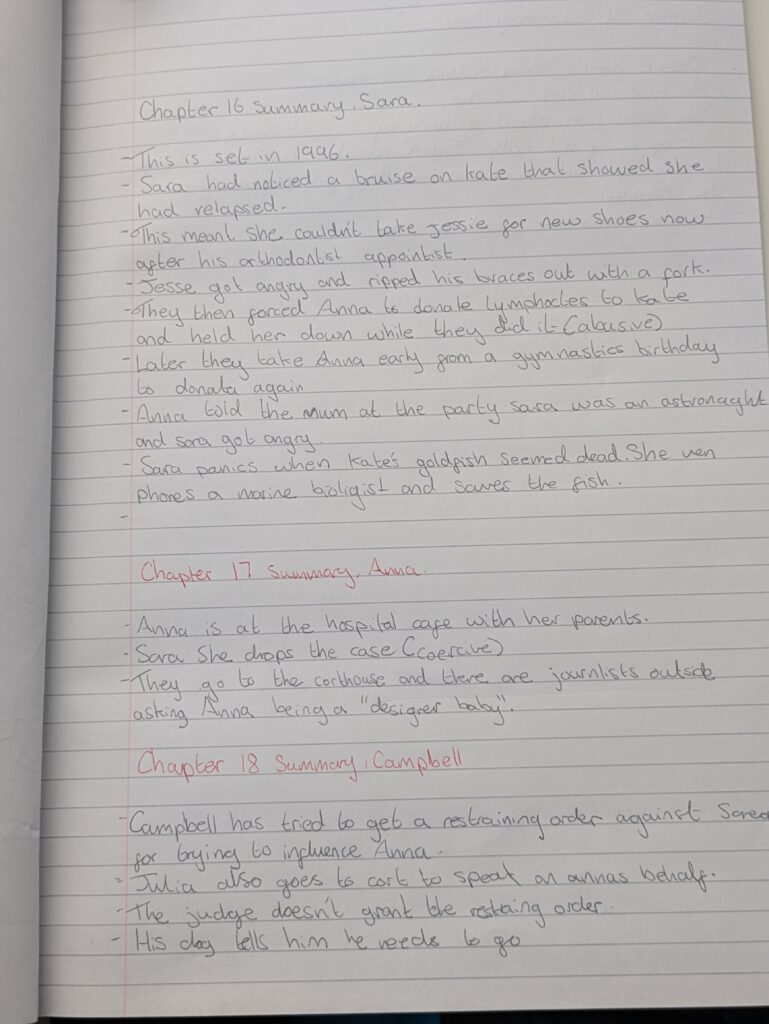 Chapter 16 Summary, Sara.
- This is set in 1996.
- Sara had noticed a bruise on kate that showed she
had relapsed.
- This meant she couldn't take Jessie for new shoes now
after his orthodontist appointist.
- Jesse got angry and ripped his braces out with a fork.
- They then forced Anna to donate lymphocles to kate
and held her down while they did it (abusive)
- Later they take Anna early from a gymnastics birthday
to donata again
- Anna told the mum at the party sara was an astronaght
and sara got angry.
- Sara panics when kate's goldfish seemed dead. She ven
phones a marine bioligist and saves the fish.
-
Chapter 17 Summary, Anna.
- Anna is at the hospital cafe with her parents.
- Sara She drops the case (coercive)
- They go to the corthouse and there are journlists outside
asking Anna being a "designer baby".
Chapter 18 Summary, Campbell
- Campbell has tried to get a restraining order against
for trying to influence Anna.
- Julia also goes to cort to speak on annas behalf.
- The judge doesn't grant the restaing order.
- His dog tells him he needs to go